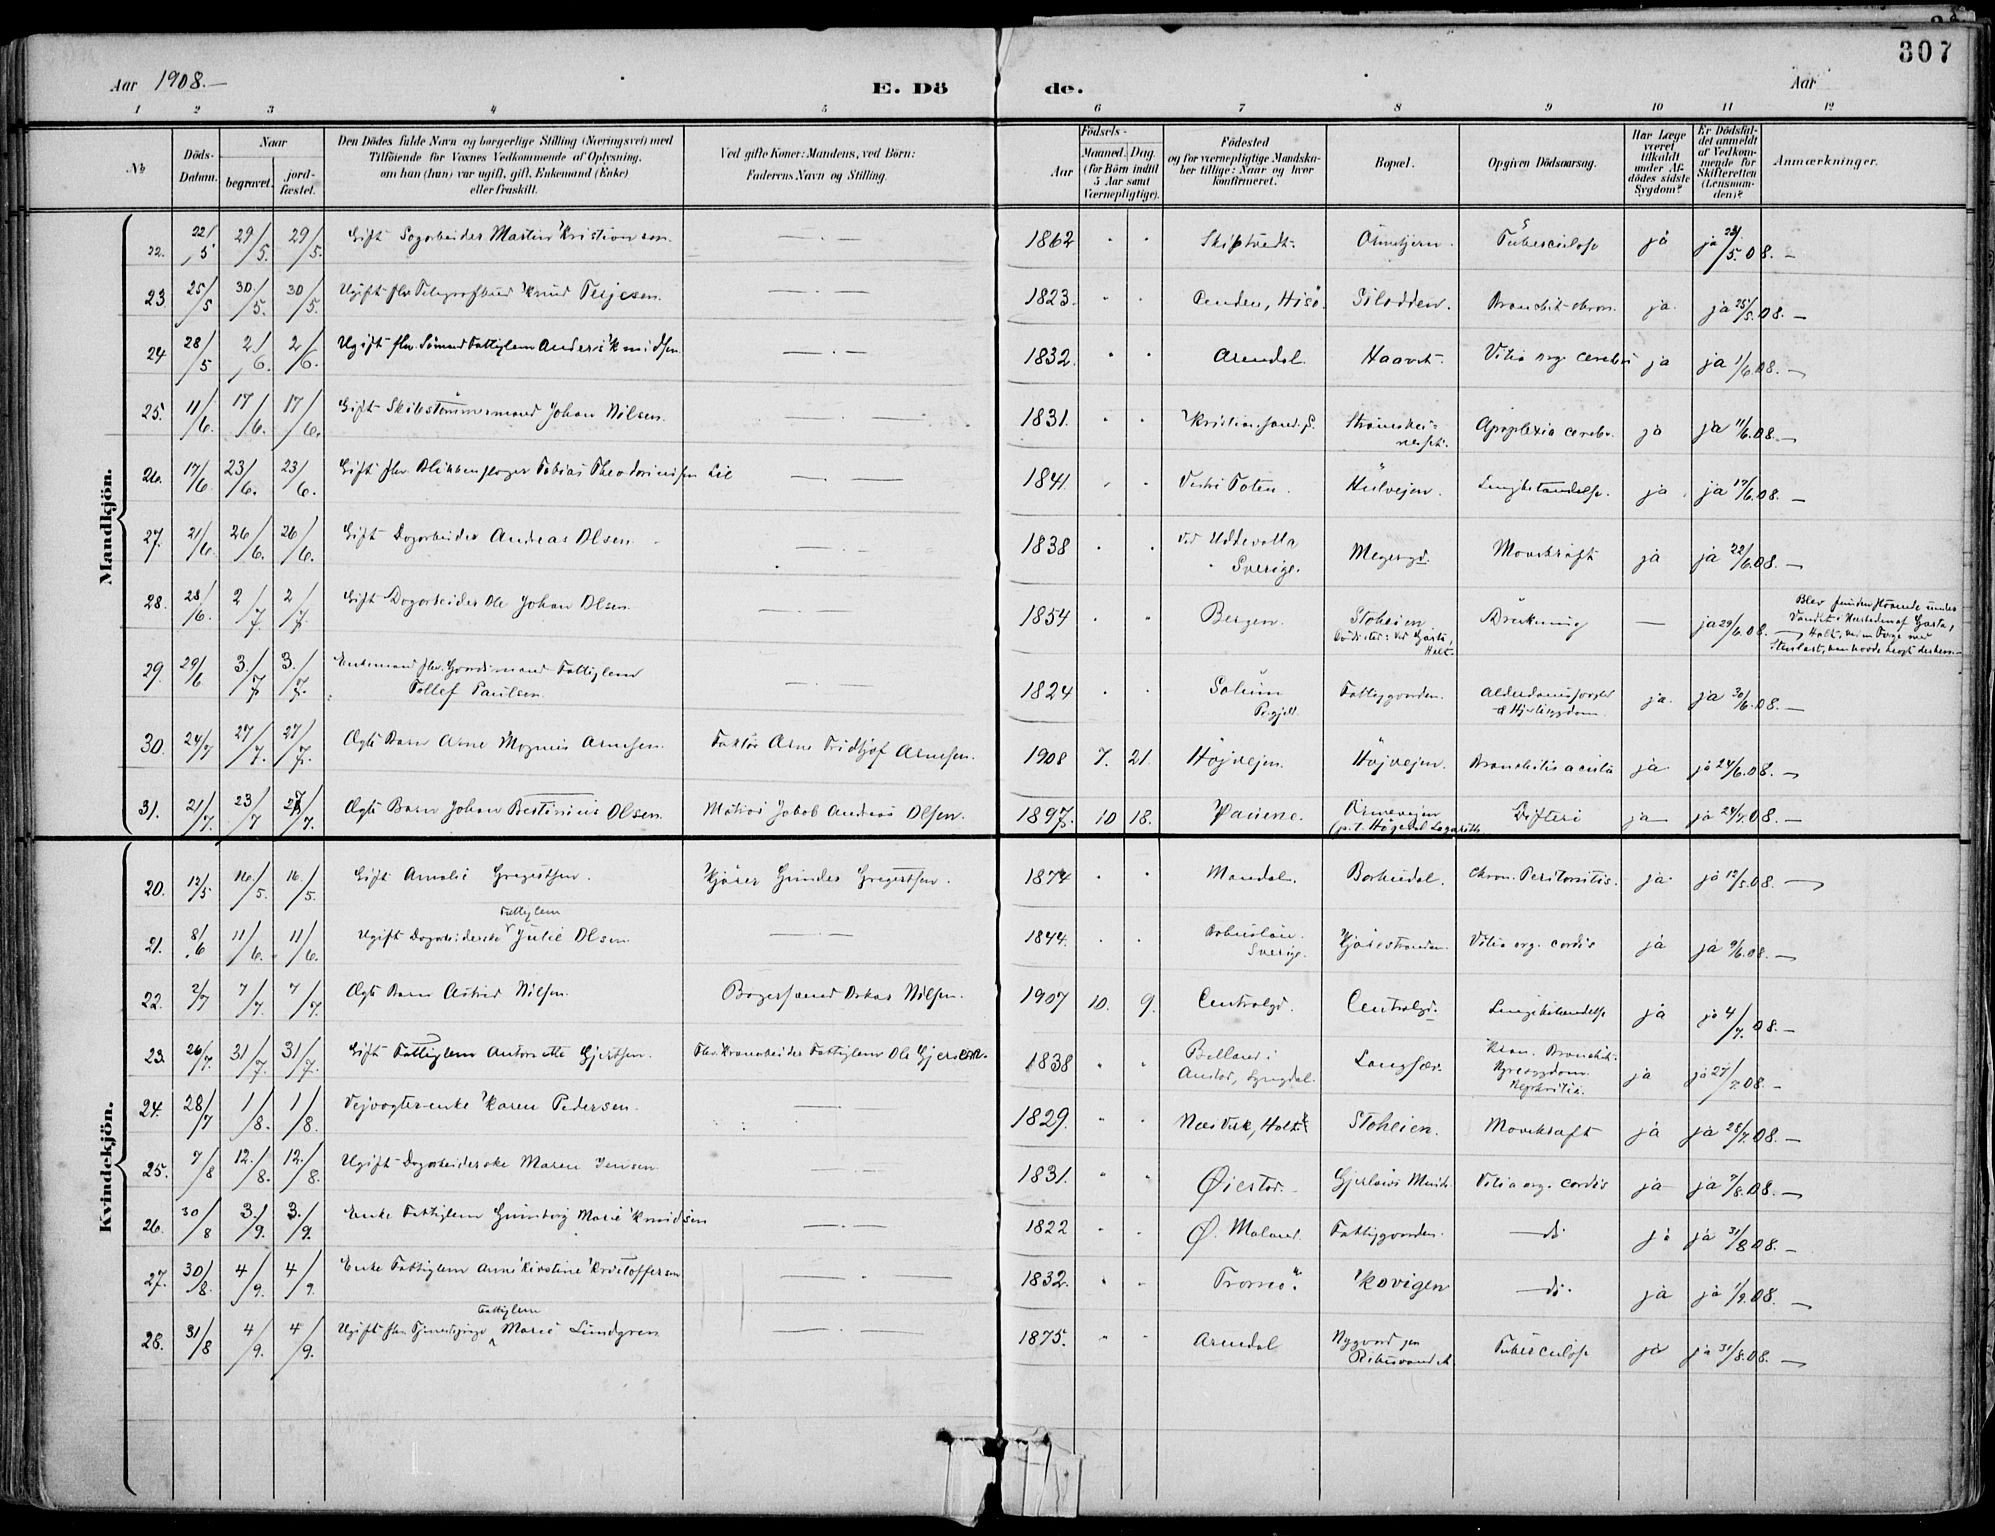 307
Aar 1908.— E. Dö de. Aar
1 2 3 4 5 6 7 8 9 10 11 12
No
Döds-Datum.
Naar
begravet.
jord-fæstet.
Den Dödes fulde Navn og borgerlige Stilling (Næringsvei) med
Tilföiende for Voxnes Vedkommende af Oplysning,
om han (hun) var ugift, gift, Enkemand (Enke)
eller fraskilt.
Ved gifte Koner: Mandens, ved Börn:
Faderens Navn og Stilling.
Födsels-
Aar
Maaned. Dag.
(for Börn indtil
5 Aar samt
Værnepligtige).
Födested
og for værnepligtige Mandska-
ber tillige: Naar og hvor
konfirmeret.
Bopæl.
Opgiven Dödsaarsag.
Har Læge
været
tilkaldt
under Af-
dödes sidste
Sygdom?
Er Dödsfal-
det anmeldt
af Vedkom-
mende for
Skifteretten
(Lensman-
den)?
Anmærkninger.
Mandkjön.
22. 22/5 29/5. 29/5. Gift Martin Kristiansen. 1862 Skiptvedt. Tuberculose ja ja 5.08.—
23 25/5 30/5. 30/5. Ugift fhv. Telegrafbud Knud Terjesen. 1823. Hisö. Bronchit chron. ja. ja 25/5.08.—
24 28/5 2/6. 2/6. Ugift fhv. Sömand Fattiglem Anders Knudsen. 1832. Arendal. Haavet. Vitia org. cerebri ja ja 1/6.08.—
25. 11/6. 17/6. 17/6. Gift Skibstömmermand Johan Nilsen. 1831. Kristiansand.S. Apoplexia cerebri. ja ja 11/6.08.—
26. 17/6 23/6. 23/6. Gift fhv. Tobias Theodoriussen Lie 1841. Vestre Toten. Lungebetændelse. ja. ja 17/6.08.—
27. 21/6. 26/6. 26/6. Gift Dagarbeider Andreas Olsen. 1838 ved Uddevalla
Sverige. Megersgd. Marekraft ja ja 22/6.08.—
28. 28/6. 2/7. 2/7. Gift Dagarbeider Ole Johan Olsen. 1854. Bergen. Stoheien
Holt. Drukning — ja 29/6.08.
Blev funden under
Vandet i Garta,
Holt,
29. 29/6 3./7. 3./7. Enkemand fhv. Gaardmand Fattiglem
Tollef Paulsen. 1824 Solum
Prgjeld. Fattiggaarden. ja. ja 30/6.08.—
30. 24/7 27/7. 27/7. Ægte Barn Arne Magnus Arnesen. Faktor Arne Fridtjof Arnesen. 1908 7. 21. Höjvejen. Höjvejen. Bronchitis acuta ja ja 24/6.08.—
31. 21/7. 23/7 /7. Ægte Barn Johan Olsen. Matros Jakob Andreas Olsen. 1897. 10 18.
(p.t. Lazareth Difteri ja ja 24/7.08.—
Kvindekjön.
20. 12/5 16./5 16./5. Gift Amalie Gregertsen. Kjörer Gunder Gregertsen. 1874 Mandal. Barbudal. Chron. Peritonitis. ja. ja 12/5.08.—
Fattiglem
21. 8/6 11/6. 11/6. Ugift Dagarbeiderske Julie Olsen 1844. Bohuslän.
Sverige. Vitia org. cordis ja ja 9/6.08.—
22. 2/7 7/7. 7/7. Ægte Barn Astrid Nilsen. Oskar Nilsen. 1907 10. 9. Centralgd. Centralgd. Lungebetændelse ja ja 4/7.08.—
23. 26/7. 31/7. 31/7. Gift Fattiglem Antonette Gjertsen. Fattiglem Ole Gjertsen. 1838
Lyngdal. Langsæ. Kron. Bronchit.
Nyresygdom
Nephritis. ja ja 27/7.08.—
24. 28/7 1/8. 1/8. Vejvogterenke Karen Pedersen. 1829. Næs Verk, Holt. Stoheien. Marekraft ja ja 28/7.08.—
25. 7/8 12./8. 12./8. Ugift Dagarbeiderske Maren Jensen. 1831. Øiestad. Gjerlöws Minde. Vitia org. cordis ja ja 7/8.08.—
26. 30/8 3./9. 3./9. Enke Fattiglem Gunborg Marie Knudsen 1822 Ø. Moland. Fattiggaarden. —do ja ja 31/8 08.—
27. 30/8. 4/9. 4/9. Enke Fattiglem Anne Kirstine Kristoffersen 1832. Tromö. Kovigen —do. ja ja 1/9.08.—
Fattiglem
28. 31/8 4/9. 4/9. Ugift fhv. Tjenestepige Marie Lundgren 1875. Arendal Nygaard pr
Tuberculose ja ja 31/8.08.—